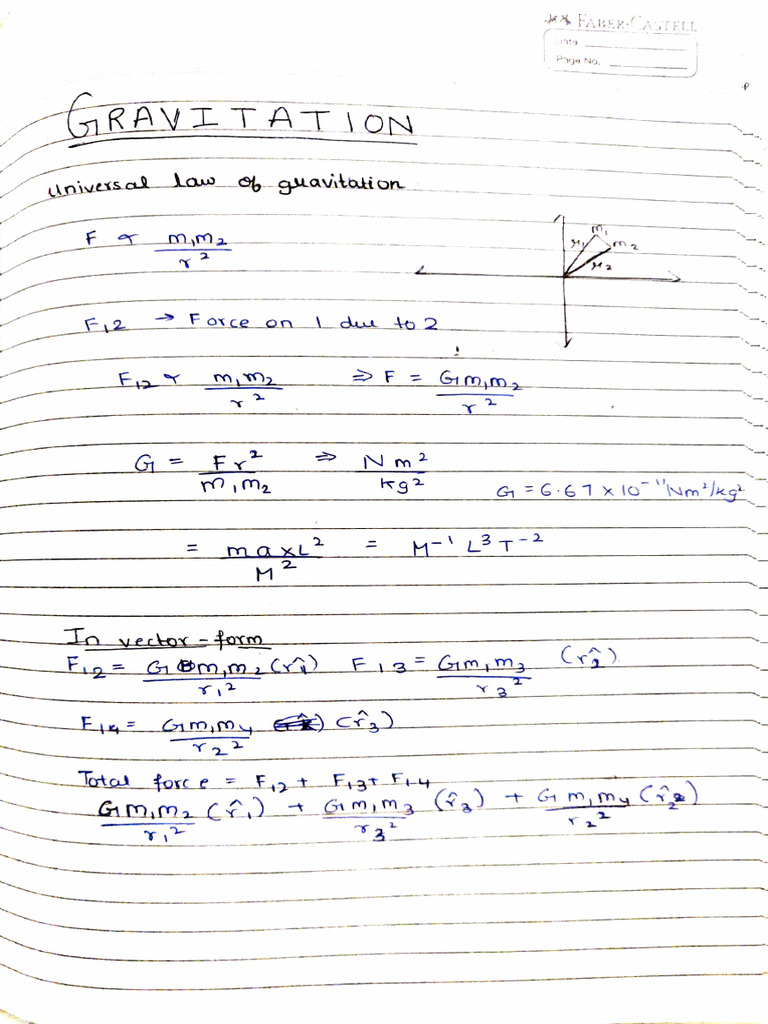 FABER-CASTELL
Date
Page No.
GRAVITATION
universal law of gravitation
F ∝ m₁m₂ / r²
m₁
r₁ m₂
r₂
F₁₂ → Force on 1 due to 2
F₁₂ ∝ m₁m₂ / r² ⇒ F = Gm₁m₂ / r²
G = Fr² / m₁m₂ ⇒ Nm² / kg²
G = 6.67 × 10⁻¹¹ Nm²/kg²
= maxL² / M² = M⁻¹ L³ T⁻²
In vector-form
F₁₂ = G m₁m₂ / r₁² (r̂₁) F₁₃ = Gm₁m₃ / r₃² (r̂₂)
F₁₄ = Gm₁m₄ / r₂² (r̂₃)
Total force = F₁₂ + F₁₃ + F₁₄
Gm₁m₂ / r₁² (r̂₁) + Gm₁m₃ / r₃² (r̂₃) + Gm₁m₄ / r₂² (r̂₂)